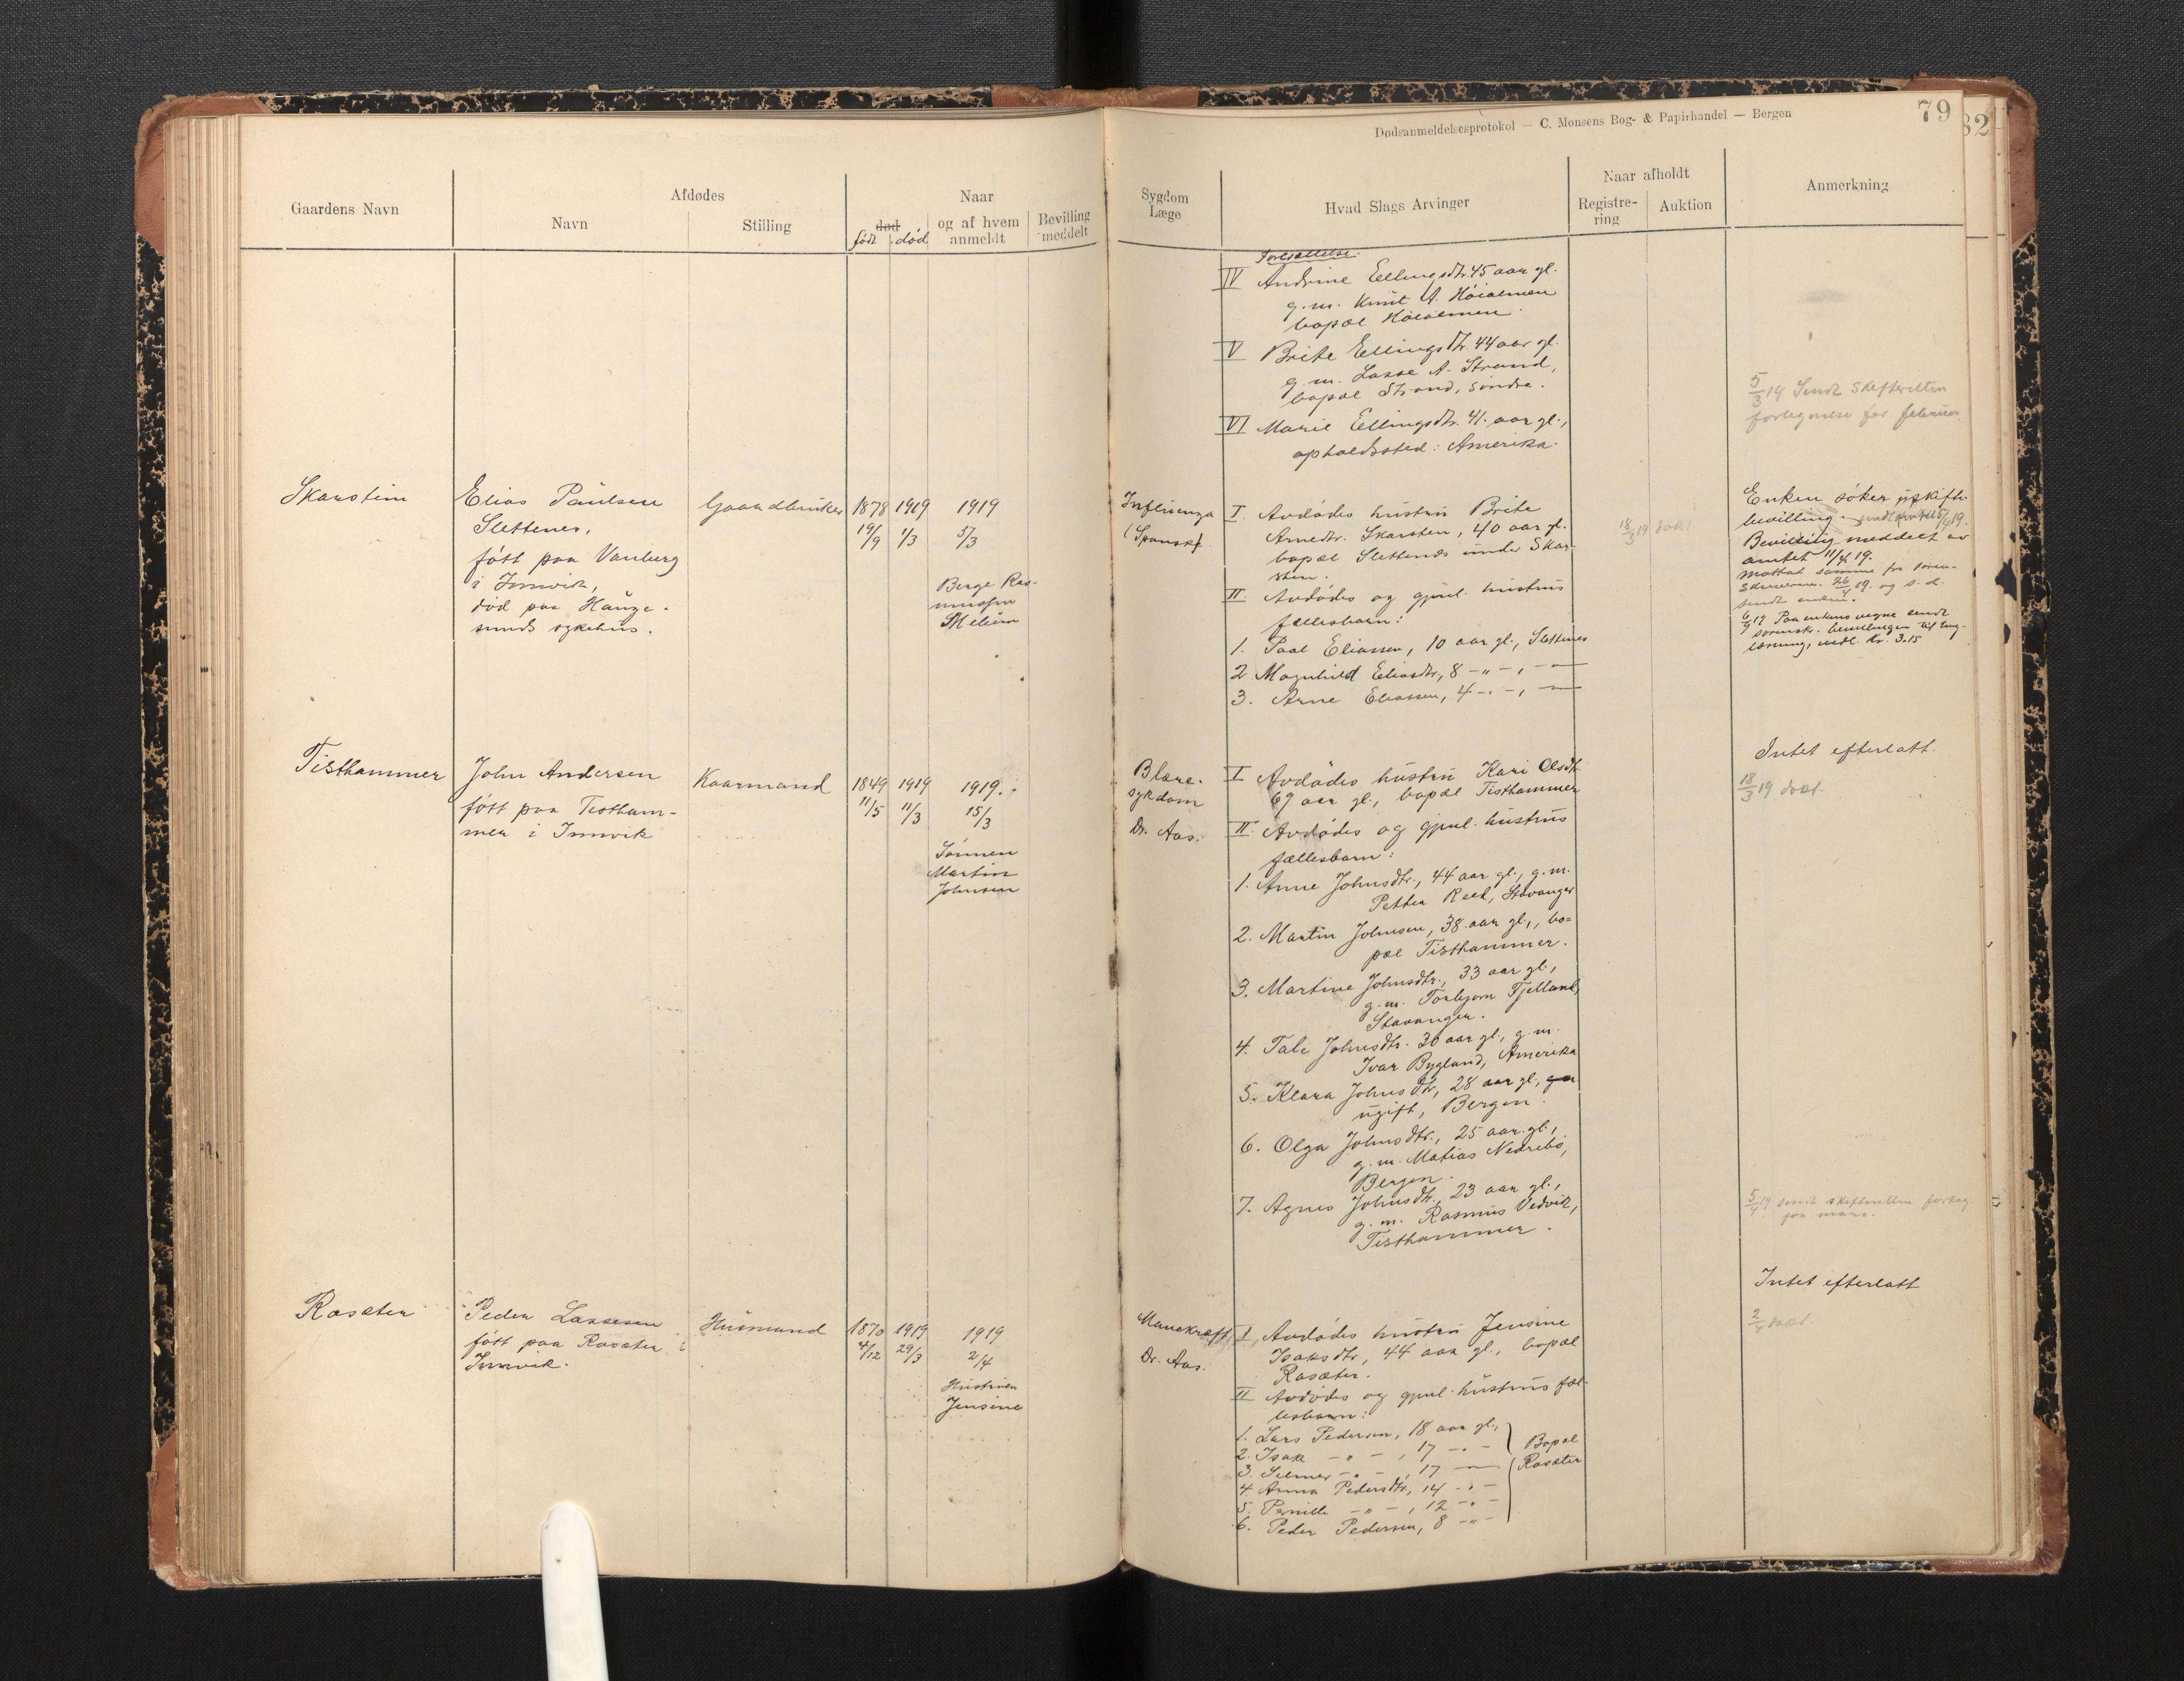 Dødsanmeldelsesprotokol — C. Monsens Bog- & Papirhandel — Bergen
79
82
Gaardens Navn
Afdødes
Navn
Stilling
død
født
død
Naar
og af hvem
anmeldt
Bevilling
meddelt
Sygdom
Læge
Hvad Slags Arvinger
Naar afholdt
Registre-
ring
Auktion
Anmerkning
Fortsættelse.
IV Andrine Ellingsdtr. 45 aar gl.
g.m. Knut A.
bopæl
V Brite Ellingsdtr. 44 aar gl.
g.m. Lasse A. Strand,
bopæl Strand, søndre.
VI Marie Ellingsdtr. 41. aar gl.,
opholdssted: Amerika.
5/3 19 Sendt Skifteretten
fortegnelse for februar
Skarstein
Elias Paulsen
Slettenes,
født paa
i Innvik,
død paa Hauge-
sunds sykehus.
Gaardbruker
1878
19/9
1919
1/3
1919
5/3
Berge Ras-
mussen
Influenza
(Spansk)
I. Avdødes hustru Brite
Arnedtr. Skarsten, 40 aar gl.
bopæl Slettenes under Skar-
sten.
II. Avdødes og gjenl. hustrus
fællesbarn:
1. Paal Eliassen, 10 aar gl., Slettenes
2. Magnhild Eliasdtr., 8 -"-, -"-
3. Arne Eliassen, 4 -"-, -"-
18/3 19
Enken søker uskifte-
bevilling.
Bevilling meddelt av
amtet 11/4 19.
Mottat samme fra soren-
skriveren 26/4 19. og s.d.
sendt enken.
Paa enkens vegne sendt
sorenskr. bevillingen til ting-
læsning, vedl. Kr. 3.15
Tisthammer
John Andersen
født paa Tistham-
mer i Innvik
Kaarmand
1849
11/5
1919
11/3
1919.
15/3
Sønnen
Martin
Johnsen
Blære-
sykdom
Dr. Aas.
I Avdødes hustru Kari Olsdtr.
69 aar gl., bopæl Tisthammer
II. Avdødes og gjenl. hustrus
fællesbarn:
1. Anne Johnsdtr., 44 aar gl., g.m.
Petter Reed, Stavanger
2. Martin Johnsen, 38 aar gl., bo-
pæl Tisthammer.
3. Martine Johnsdtr., 33 aar gl.,
g.m. Torbjørn Fjelland,
Stavanger.
4. Tale Johnsdtr. 30 aar gl., g.m.
Ivar Bygland, Amerika
5. Klara Johnsdtr., 28 aar gl., gm
ugift, Bergen.
6. Olga Johnsdtr., 25 aar gl.,
g.m. Matias Nedrebø,
Bergen.
7. Agnes Johnsdtr., 23 aar gl.,
g.m. Rasmus Vedvik,
Tisthammer.
Intet efterlatt.
18/3 19
5/4 19 sendt skifteretten forteg.
for mars.
Rosæter
Peder Lassesen
født paa Rosæter i
Innvik.
Husmand
1870
4/12
1919
29/3
1919
2/4
Hustruen
Jensine
Mavekræft
Dr. Aas.
I. Avdødes hustru Jensine
Isaksdtr., 44 aar gl., bopæl
Rosæter.
II Avdødes og gjenl. hustrus fæl-
lesbarn:
1. Lars Pedersen, 18 aar gl.,
2. Isak -"-, 17 -"-
3. Selmer -"-, 17 -"-
4. Anna Pedersdtr., 14 -"-
5. Pernille -"-, 12 -"-
6. Peder Pedersen, 8 -"-
Bopæl
Rosæter
Intet efterlatt
2/4